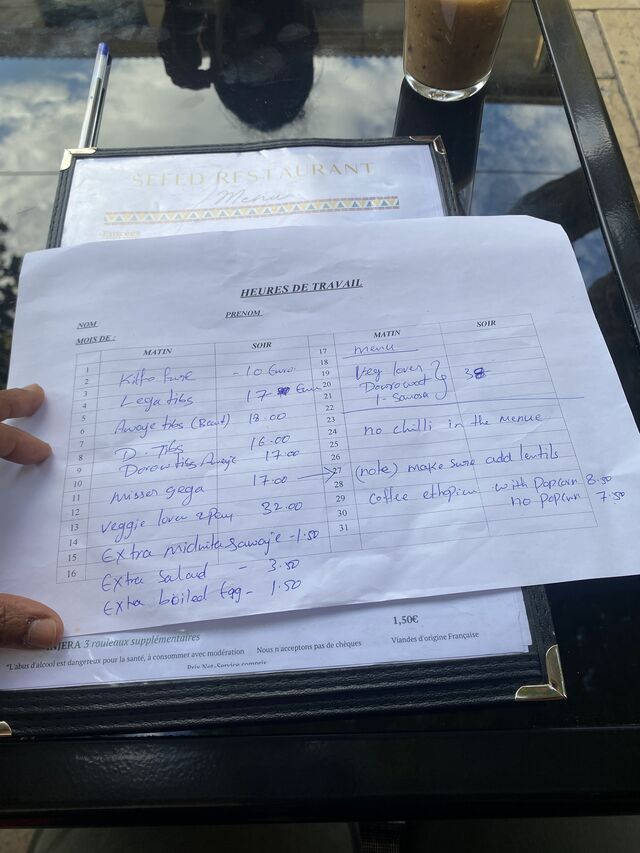 SEFED RESTAURANT
Menu
Entrées
HEURES DE TRAVAIL
NOM
PRENOM
MOIS DE :
MATIN SOIR
1
2 Kitfo Fuse - 10 Euro
3
4 Lega tibs 17 Euro
5
6 Awaje tibs (Beaut) 18.00
7 D. Tibs 16.00
8 Dorow tibs Awaje 17.00
9
10 misser sega 17.00
11
12
13 veggie lover 2 Per 32.00
14
15 Extra midmita sawaje - 1.50
16
Extra Salad - 3.50
Extra boiled Egg - 1.50
MATIN SOIR
17 menu
18
19 Veg lover
20 Dorowot 38
21 1 - Samosa
22
23
24 no chilli in the menue
25
26
27 (note) make sure add lentils
28
29 coffee ethopian with Popcorn 8.50
30 no Popcorn 7.50
31
INJERA 3 rouleaux supplémentaires 1,50€
*L'abus d'alcool est dangereux pour la santé, à consommer avec modération Nous n'acceptons pas de chèques Viandes d'origine Française
Prix Net-Service compris